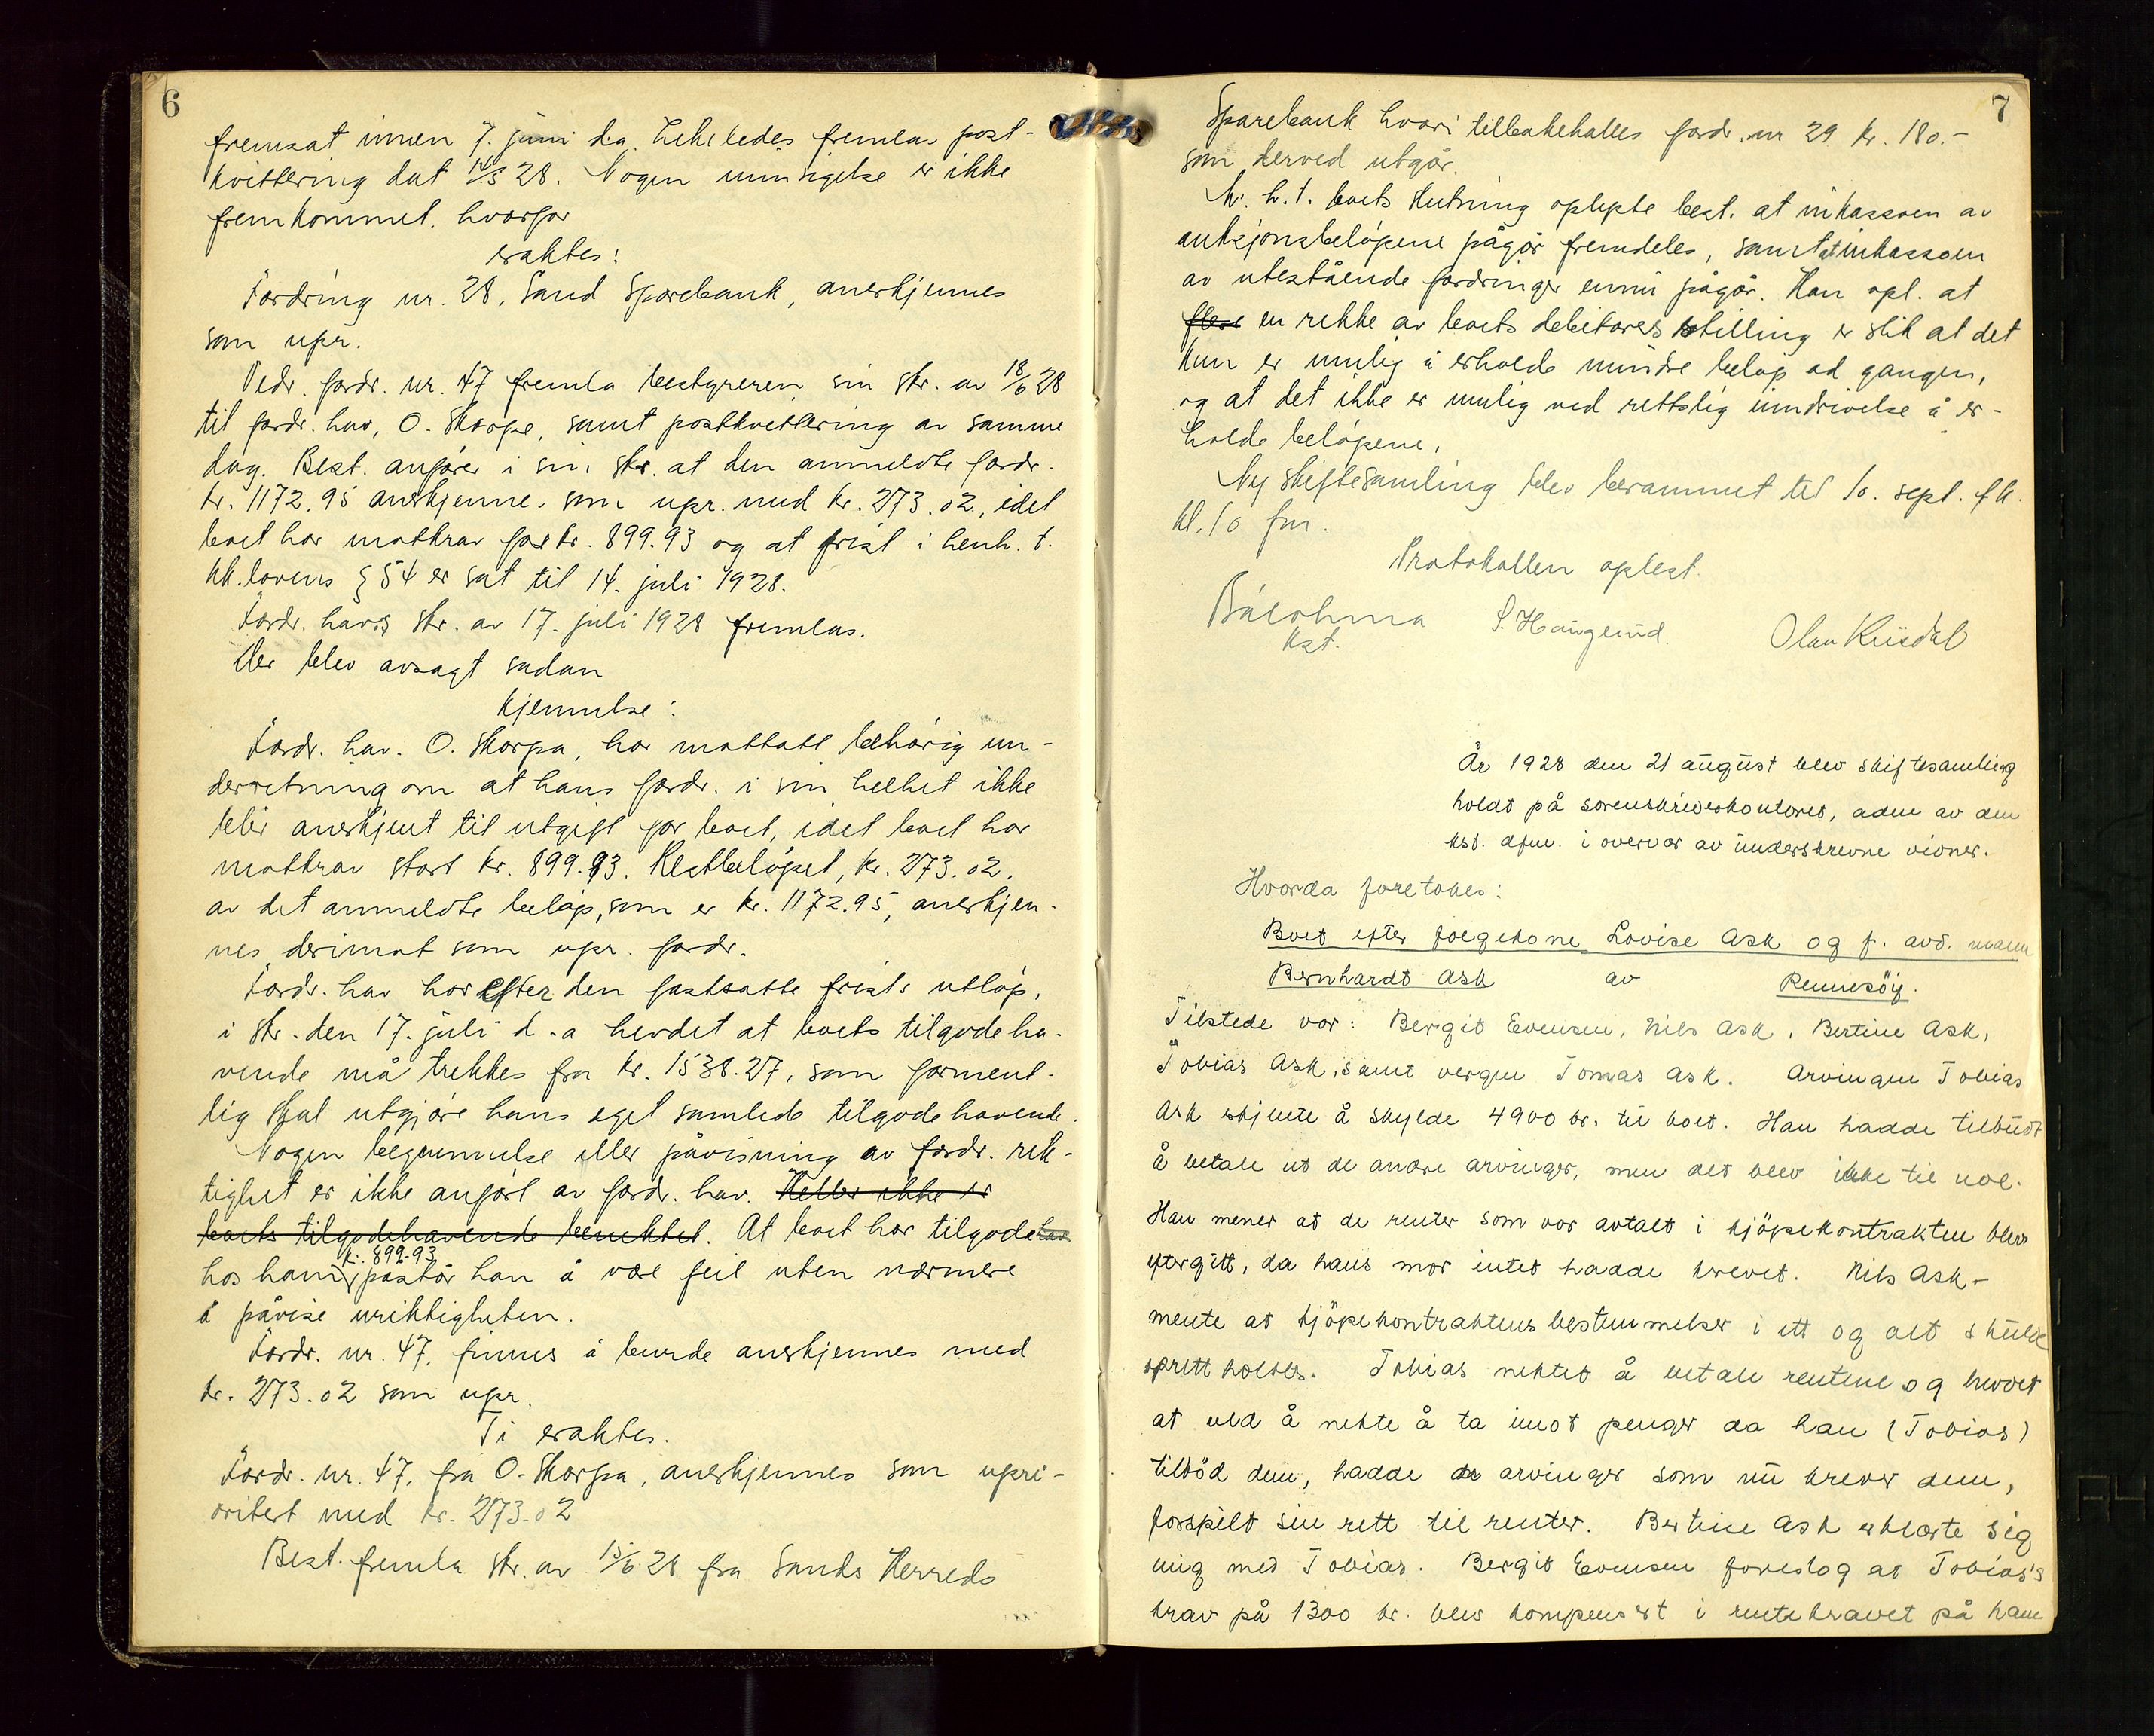 6
fremsat innen 7. juni d.a. Likeledes fremla- post-
kvittering dat 14/5 28. Nogen innsigelse er ikke
fremkommet. hvorfor
eraktes:
Fordring nr. 28, Sand Sparebank, anerkjennes
som upr.
Vedr. fordr. nr. 47 fremla bestyreren sin skr. av 18/6 28
til fordr. hav, O. Skorpe, samt postkvittering av samme
dag. Best. anfører i sin skr. at den anmeldte fordr.
kr. 1172.95 anerkjenne. som upr. med kr. 273.02, idet
boet har motkrav for kr. 899.93 og at frist i henh. t.
kk.lovens § 54 er sat til 14. juli 1928.
Fordr. havs skr. av 17. juli 1928 fremlas.
Der blev avsagt sadan
Kjennelse:
Fordr. hav. O. Skorpa, har mottatt behørig un-
derretning om at hans fordr. i sin helhet ikke
blir anerkjent til utgift for boet, idet boet har
motkrav stort kr. 899.93. Restbeløpet, kr. 273.02.
av det anmeldte beløp, som er kr. 1172.95, anerkjen-
nes derimot som upr. fordr.
Fordr. hav har efter den fastsatte frists utløp,
i skr. den 17. juli d.a hevdet at boets tilgodeha-
vende må trekkes fra kr. 1538.27, som forment-
lig skal utgjøre hans eget samlede tilgodehavende.
Nogen begrunnelse eller påvisning av fordr. rik-
tighet er ikke anført av fordr. hav. Heller ikke er
boets tilgodehavende benektet. At boet har tilgodehav
hos ham kr. 899.93 påstår han å være feil uten nærmere
å påvise uriktigheten.
Fordr. nr. 47. finnes å burde anerkjennes med
kr. 273.02 som upr.
Ti eraktes.
Fordr. nr. 47. fra O. Skorpa, anerkjennes som upri-
oritert med kr. 273.02
Best. fremla skr. av 15/6 28 fra Sands Herreds
7
Sparebank hvori tilbakekalles fordr. nr 29 kr. 180.-
som derved utgår.
M. h. t. boets slutning oplyste best. at inkassoen av
auksjonsbeløpene pågår fremdeles, samt at inkassoen
av utestående fordringer ennu pågår. Han opl. at
flere en rekke av boets debitorers stilling er slik at det
kun er mulig å erholde mindre beløp ad gangen,
og at det ikke er mulig ved rettslig inndrivelse å er-
holde beløpene.
Ny skiftesamling blev berammet til 10. sept. f.k.
kl. 10 fm.
Protokollen oplest.
kst.
S. Haugeund.
År 1928 den 21 august blev skiftesamling
holdt på sorenskriverkontoret, adm av den
kst. dfm. i overvær av underskrevne vidner.
Hvorda foretokes:
Boet efter folgekone Lovise Ask og f. avd. mann
Bernhardt Ask av Rennesöy.
Tilstede var: Bergit Evensen, Nils Ask, Bertine Ask,
Tobias Ask, samt vergen Tomas Ask. Arvingen Tobias
Ask erkjente å skylde 4900 kr. til boet. Han hadde tilbudt
å betale ut de andre arvinger, men det blev ikke til noe.
Han mener at de renter som var avtalt i kjöpekontrakten blev
eftergitt, da hans mor intet hadde krevet. Nils Ask-
mente at kjöpekontraktens bestemmelser i ett og alt skulde
oprettholdes. Tobias nektet å betale rentene og hevdet
at ved å nekte å ta imot penger da han (Tobias)
tilböd dem, hadde de arvinger som nu krever dem,
forspilt sin rett til renter. Bertine Ask erklærte sig
enig med Tobias. Bergit Evensen foreslog at Tobias's
krav på 1300 kr. blev kompensert i rentekravet på ham